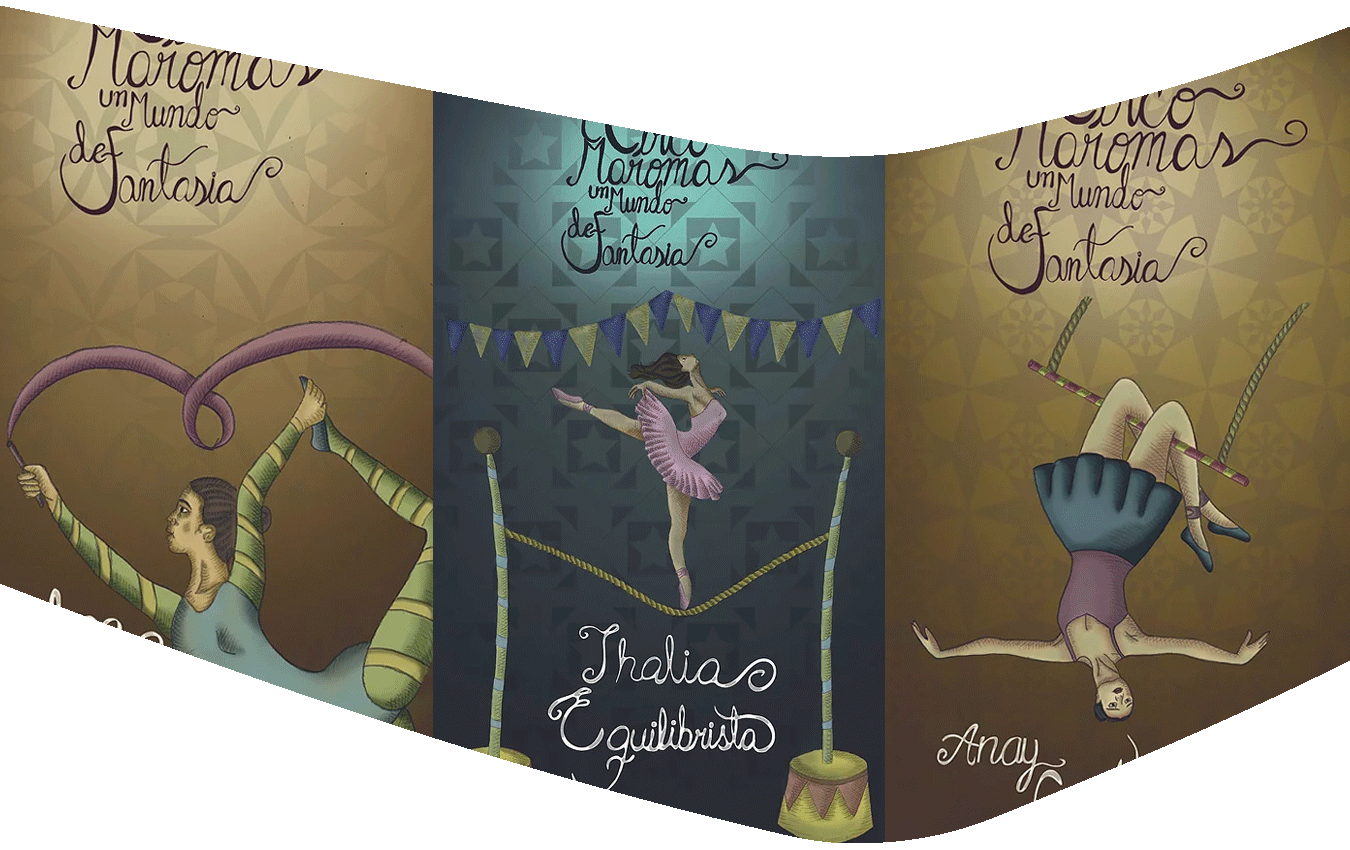 Maromas
un Mundo
de Fantasia
Circo
Maromas
un Mundo
de Fantasia
Thalia
Equilibrista
Circo
Maromas
un Mundo
de Fantasia
Anay